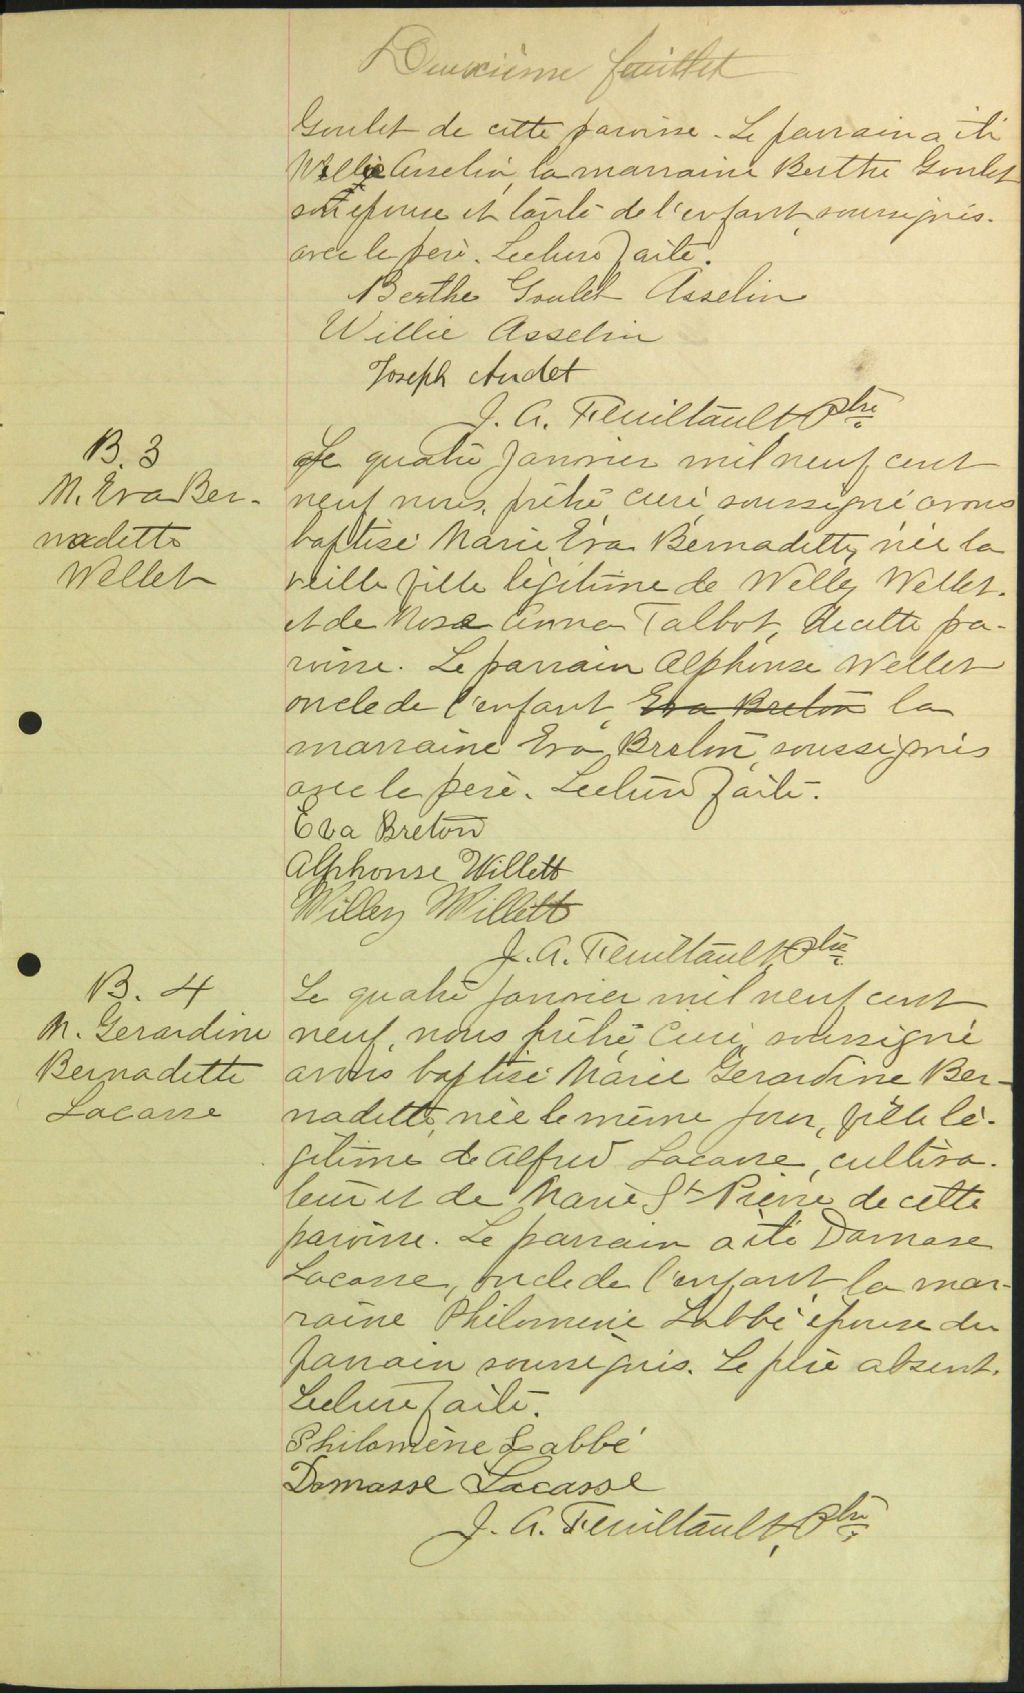 Deuxième feuillet
Goulet de cette paroisse. Le parrain a été
Willie Asselin, la marraine Berthe Goulet
son épouse et tante de l'enfant, soussignés.
avec le père. Lecture faite.
Berthe Goulet Asselin
Willie Asselin
Joseph Audet
J. A. Feuiltault, Ptre
B. 3
M. Eva Ber-
nadette
Wellet
Le quatre janvier mil neuf cent
neuf nous, prêtre curé, soussigné avons
baptisé Marie Eva Bernadette, née la
veille fille légitime de Willey Wellet.
et de Rose Anna Talbot, de cette pa-
roisse. Le parrain Alphonse Wellet
oncle de l'enfant, Eva Breton la
marraine Eva Breton, soussignés
avec le père. Lecture faite.
Eva Breton
Alphonse Willett
Willey Willett
J. A. Feuiltault, Ptre
B. 4
M. Gerardine
Bernadette
Lacasse
Le quatre janvier mil neuf cent
neuf, nous prêtre Curé, soussigné
avons baptisé Marie Gerardine Ber-
nadette, née le même jour, fille lé-
gitime de Alfred Lacasse, cultiva-
teur et de Marie St Pierre de cette
paroisse. Le parrain a été Damase
Lacasse, oncle de l'enfant, la mar-
raine Philomène Labbé épouse du
parrain soussignés. Le père absent.
Lecture faite.
Philomène Labbé
Damasse Lacasse
J. A. Feuiltault, Ptre